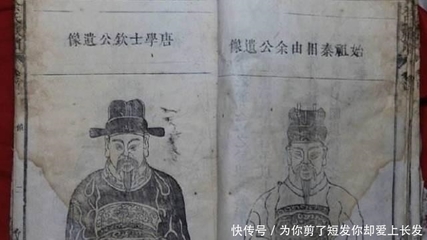 始祖秦相由余公遺像
唐學士欽公遺像
快传号 / 为你剪了短发你却爱上长发